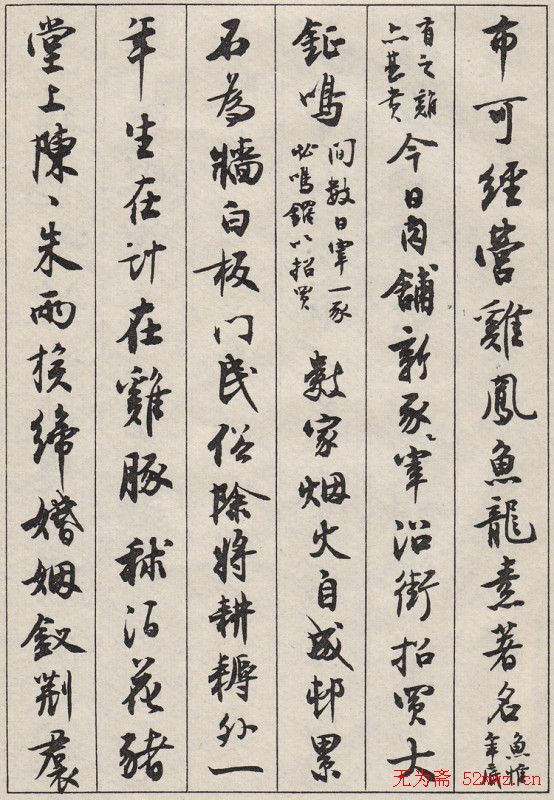 布可經營雞鳳魚龍素著名
有之頗
亦甚貴
今日肉舖新豕宰沿街招買大
鉦鳴
間數日宰一豕
必鳴鑼以招買
數家烟火自成邨累
石為牆白板门民俗除將耕耨外一
年生在计在雞豚 秫泊花豬
堂上陳〻朱兩族締婚姻釵荆裠
无为斋 52wwz.cn